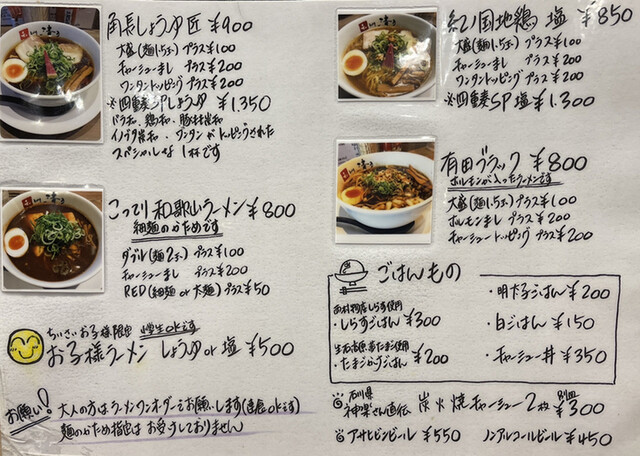 角長しょうゆ 匠 ¥900
大盛(麺1.5玉) プラス¥100
チャーシューまし プラス¥200
ワンタントッピング プラス¥200
※四重奏SPしょうゆ ¥1,350
バラ和、鶏和、豚林出和
イノブタ出和、ワンタンがトッピングされた
スペシャルな1杯です
こってり和歌山ラーメン¥800
細麺のかためです
ダブル(麺2玉) プラス¥100
チャーシューまし プラス¥200
RED(細麺 or 太麺) プラス¥50
ちいさいお子様限定 小学生OKです
お子様ラーメン しょうゆ or 塩 ¥500
お願い! 大人の方はラーメンワンオーダーでお願いします(連食OKです)
麺のかため指定は お受けしておりません
紀ノ国地鶏 塩 ¥850
大盛(麺1.5玉) プラス¥100
チャーシューまし プラス¥200
ワンタントッピング プラス¥200
※四重奏SP 塩 ¥1,300
有田ブラック ¥800
ホルモンが入ったラーメンです
大盛(麺1.5玉) プラス¥100
ホルモンまし プラス¥200
チャーシュートッピング プラス¥200
ごはんもの
しらす使用
・しらすごはん ¥300
たまご使用
・たまごかけごはん ¥200
・明太子ごはん ¥200
・白ごはん ¥150
・チャーシュー丼 ¥350
石川県
神楽さん直伝 炭火焼チャーシュー2枚 別皿 ¥300
アサヒビンビール ¥550 ノンアルコールビール ¥450